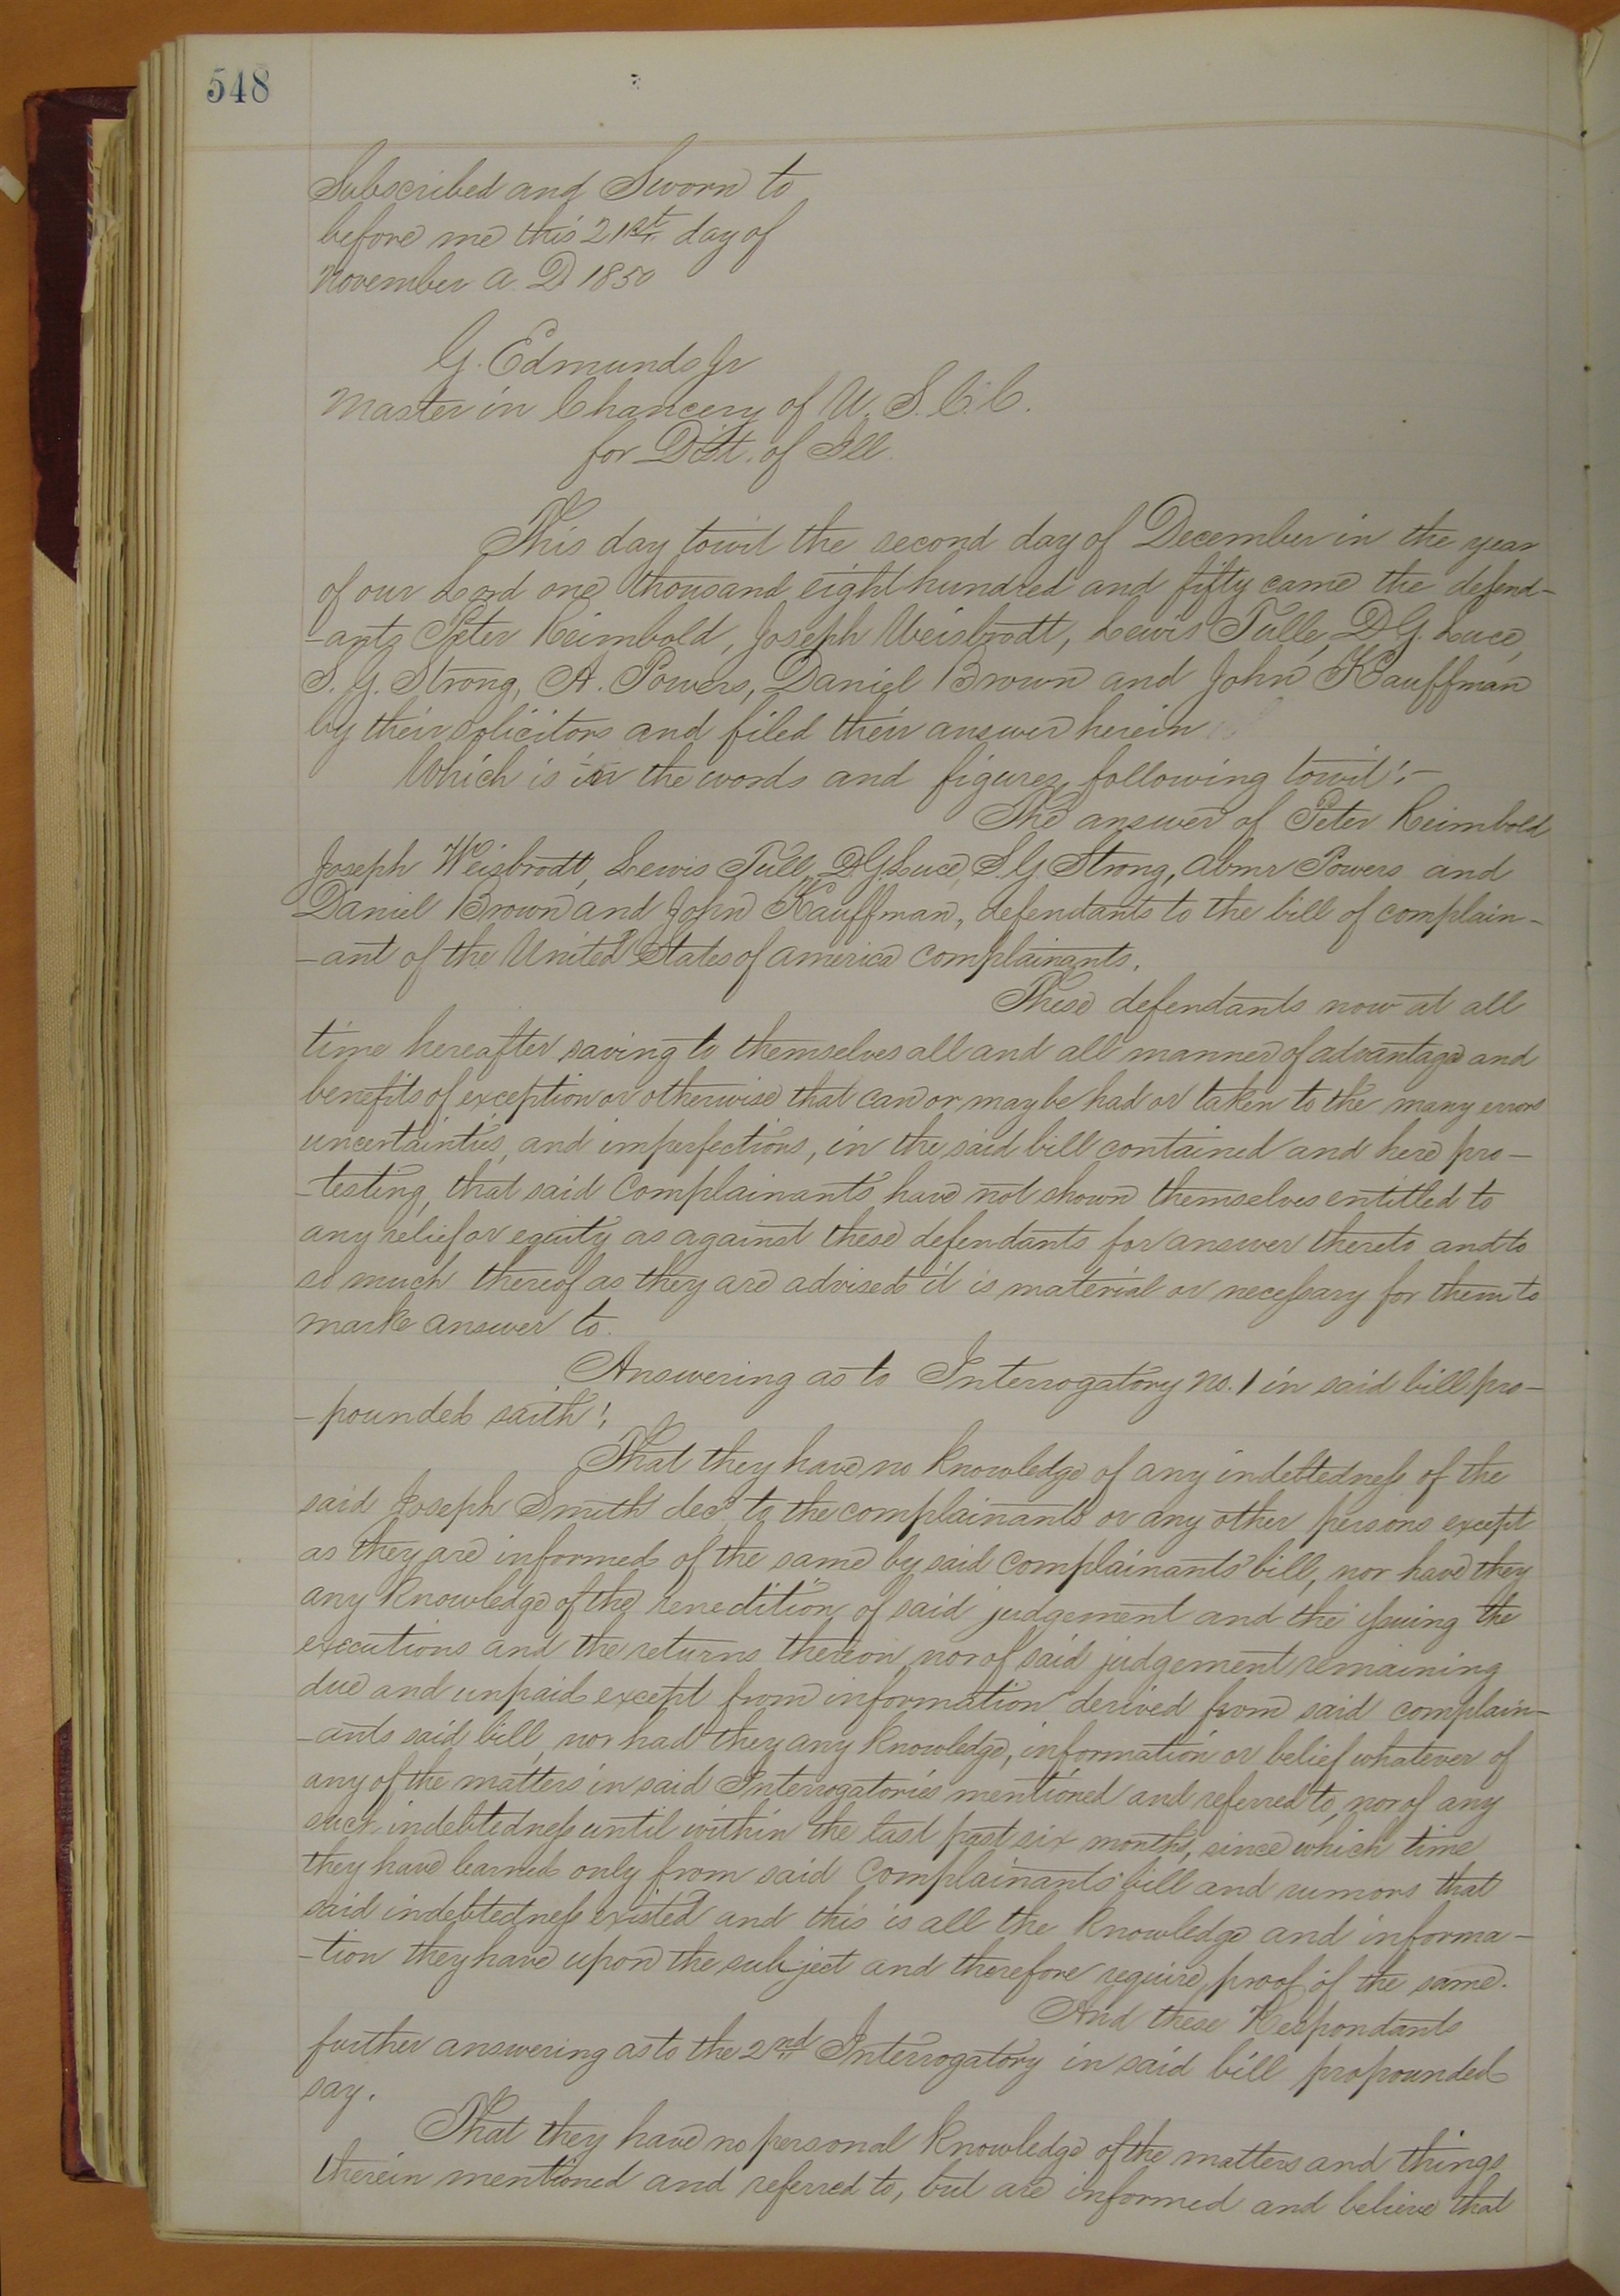 548
Subscribed and Sworn to
before me this 21st day of
November A. D 1850
G. Edmunds Jr
Master in Chancery of U. S. C. C.
for Dist. of Ill.
This day towit the second day of December in the year
of our Lord one thousand eight hundred and fifty came the defend-
-ants Peter Reimbold, Joseph Weisbrodt, Lewis Tulle, D G. Luce,
S. G. Strong, A. Powers, Daniel Brown and John Kauffman
by their solicitors and filed their answer herein
Which is in the words and figures, following towit:-
The answer of Peter Reimbold
Joseph Weisbrodt, Lewis Tull, D G. Luce, S. G Strong, Abmr Powers and
Daniel Brown and John Kauffman, defendants to the bill of complain-
-ant of the United States of America Complainants.
These defendants now at all
time hereafter saving to themselves all and all manner of advantage and
benefits of exception or otherwise that can or may be had or taken to the many errors
uncertainties, and imperfections, in the said bill contained and here pro-
-testing, that said Complainants have not shown themselves entitled to
any relief or equity as against these defendants for answer thereto and to
so much thereof as they are advised it is material or necessary for them to
make answer to.
Answering as to Interrogatory No. 1 in said bill pro-
-pounded saith:
That they have no knowledge of any indebtedness of the
said Joseph Smith decd to the complainants or any other persons except
as they are informed of the same by said Complainants' bill, nor have they
any knowledge of the renedition of said judgement and the issuing the
executions and the returns thereon nor of said judgement remaining
due and unpaid except from information derived from said complain-
-ants said bill, nor had they any knowledge, information or belief whatever of
any of the matters in said Interrogatories mentioned and referred to, nor of any
such indebtedness until within the last past six months, since which time
they have learned only from said Complainants' bill and rumors that
said indebtedness existed and this is all the knowledge and informa-
-tion they have upon the subject and therefore require, proof of the same.
And these Respondants
further answering as to the 2nd Interrogatory in said bill propounded
say.
That they have no personal knowledge of the matters and things
therein mentioned and referred to, but are informed and believe that